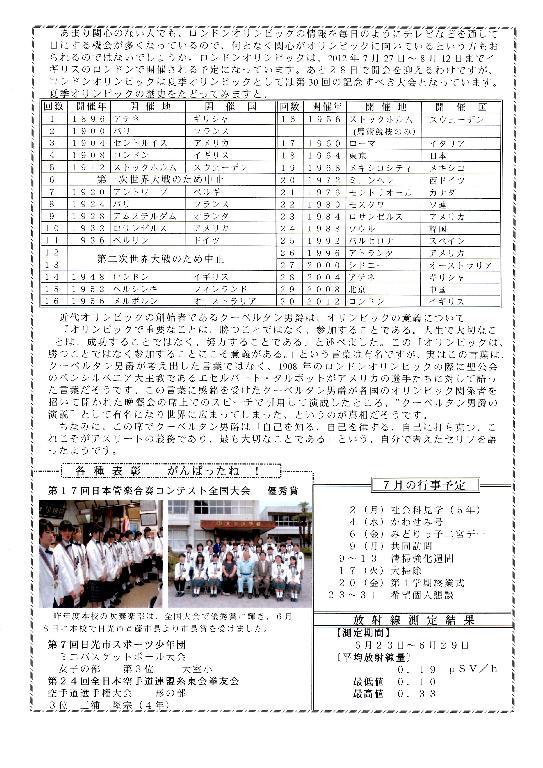 あまり関心のない人でも、ロンドンオリンピックの情報を毎日のようにテレビなどを通して
目にする機会が多くなっているので、何となく関心がオリンピックに向いているという方もお
られるのではないでしょうか。ロンドンオリンピックは、2012年7月27日～8月12日までイ
ギリスのロンドンで開催される予定になっています。あと２８日で開会を迎えるわけですが、
ロンドンオリンピックは夏季オリンピックとしては第30回の記念すべき大会となっています。
夏季オリンピックの歴史をたどってみますと、
回数 開催年 開催地 開催国 回数 開催年 開催地 開催国
１ １８９６ アテネ ギリシャ １６ １９５６ ストックホルム スウェーデン
２ １９００ パリ フランス (馬術競技のみ)
３ １９０４ セントルイス アメリカ １７ １９６０ ローマ イタリア
４ １９０８ ロンドン イギリス １８ １９６４ 東京 日本
５ １９１２ ストックホルム スウェーデン １９ １９６８ メキシコシティ メキシコ
６ 第一次世界大戦のため中止 ２０ １９７２ ミュンヘン 西ドイツ
７ １９２０ アントワープ ベルギー ２１ １９７６ モントリオール カナダ
８ １９２４ パリ フランス ２２ １９８０ モスクワ ソ連
９ １９２８ アムステルダム オランダ ２３ １９８４ ロサンゼルス アメリカ
１０ １９３２ ロサンゼルス アメリカ ２４ １９８８ ソウル 韓国
１１ １９３６ ベルリン ドイツ ２５ １９９２ バルセロナ スペイン
１２ 第二次世界大戦のため中止 ２６ １９９６ アトランタ アメリカ
１３ ２７ ２０００ シドニー オーストラリア
１４ １９４８ ロンドン イギリス ２８ ２００４ アテネ ギリシャ
１５ １９５２ ヘルシンキ フィンランド ２９ ２００８ 北京 中国
１６ １９５６ メルボルン オーストラリア ３０ ２０１２ ロンドン イギリス
近代オリンピックの創始者であるクーベルタン男爵は、オリンピックの意義について
「オリンピックで重要なことは、勝つことではなく、参加することである。人生で大切なこ
とは、成功することではなく、努力することである。」と述べました。この「オリンピックは、
勝つことではなく参加することにこそ意義がある。」という言葉は有名ですが、実はこの言葉は、
クーベルタン男爵が考え出した言葉ではなく、1908年のロンドンオリンピックの際に聖公会
のペンシルベニア大主教であるエセルバート・タルボットがアメリカの選手たちに対して語っ
た言葉だそうです。この言葉に感銘を受けたクーベルタン男爵が各国のオリンピック関係者を
招いて開かれた晩餐会の席上でのスピーチで引用して演説したところ、「クーベルタン男爵の
演説」として有名になり世界に広まってしまった、というのが真相だそうです。
ちなみに、この席でクーベルタン男爵は「自己を知る、自己を律する、自己に打ち克つ、こ
れこそがアスリートの義務であり、最も大切なことである」という、自分で考えたセリフを語
ったようです。
各種表彰 がんばったね！
第１７回日本管楽合奏コンテスト全国大会 優秀賞
昨年度本校の吹奏楽部は、全国大会で優秀賞に輝き、６月
８日に本校で日光市斎藤市長より市長賞を受けました。
第７回日光市スポーツ少年団
ミニバスケットボール大会
女子の部 第３位 大室小
第２４回全日本空手道連盟糸東会拳友会
空手道選手権大会 形の部
３位 三浦 （４年）
７月の行事予定
２（月）社会科見学（５年）
４（水）かわせみ号
６（金）みどりっ子二宮デー
９（月）共同訪問
９～１３ 清掃強化週間
１７（火）大掃除
２０（金）第１学期終業式
２３～３１ 希望個人懇談
放射線測定結果
【測定期間】
５月２３日～６月２９日
【平均放射線量】
０．１９ μSV/h
最低値 ０．１０
最高値 ０．３３